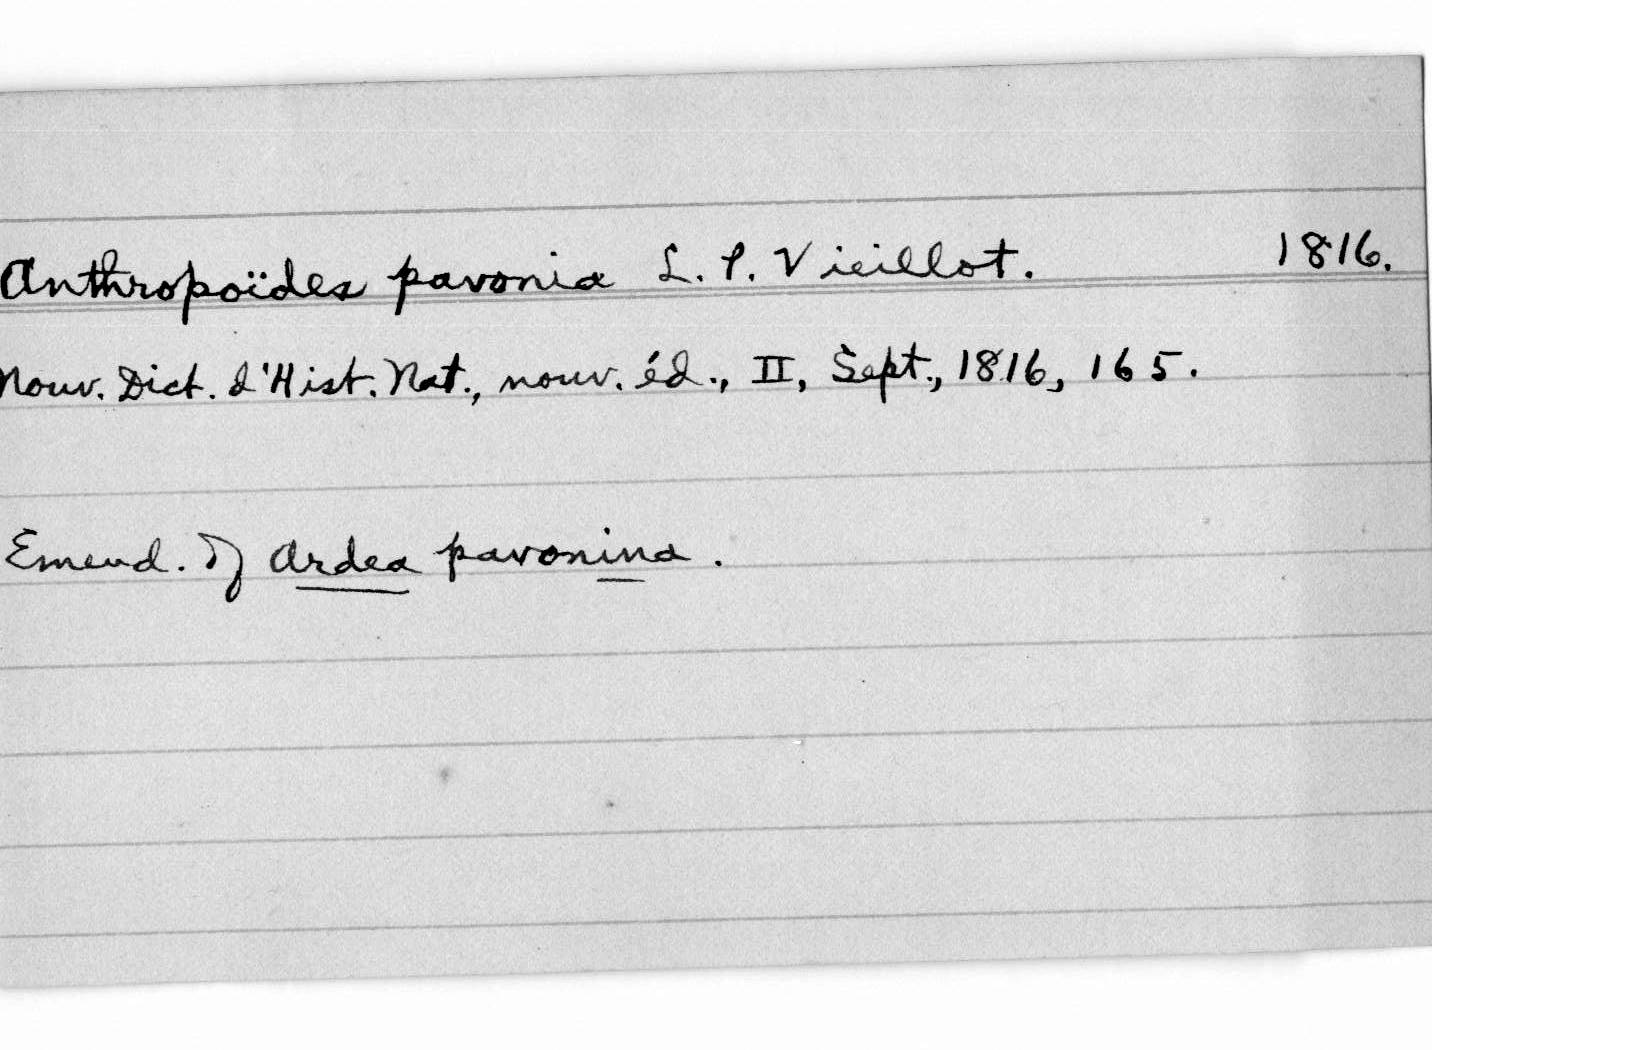 Anthropoïdes pavonia L. P. Vieillot. 1816.
Nouv. Dict. d'Hist. Nat., nouv. éd., II, Sept., 1816, 165.
Emend. of Ardea pavonina.